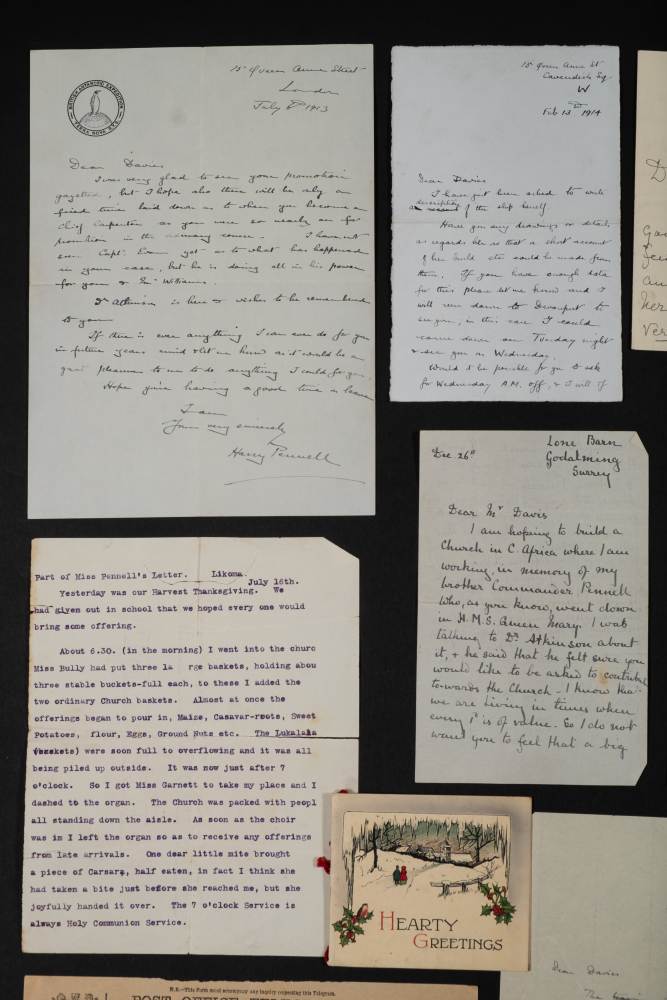 BRITISH ANTARCTIC EXPEDITION
TERRA NOVA R.Y.S.
15 Queen Anne Street
London
July 8th 1913
Dear Davies
I was very glad to see your promotion
gazetted, but I hope also there will be only a
fixed time laid down as to when you become a
Chief Carpenter as you were so nearly due for
promotion in the ordinary course. I have not
seen Capt. Evans yet as to what has happened
in your case, but he is doing all in his power
for you & Mr Williams.
Dr Atkinson is here & wishes to be remembered
to you
If there is ever anything I can ever do for you
in future years mind & let me know as it would be a
great pleasure to me to do anything I could for you.
Hope you're having a good time in leave
I am
Yours very sincerely
Harry Pennell
15 Queen Anne St
Cavendish Sq.
W
Feb 13th 1914
Dear Davies
I have just been asked to write
description
an account of the ship herself
Have you any drawings or details
as regards her so that a short account
of her build etc could be made from
them. If you have enough data
for this please let me know and I
will run down to Devonport to
see you, in this case I could
come down on Tuesday night
& see you on Wednesday.
Would it be possible for you to ask
for Wednesday A.M. off, & I will if
Dec 26th
Lone Barn
Godalming
Surrey
Dear Mr Davis
I am hoping to build a
Church in C. Africa where I am
working, in memory of my
brother Commander Pennell
who, as you know, went down
in H.M.S. Queen Mary. I was
talking to Dr Atkinson about
it, & he said that he felt sure you
would like to be asked to contribute
towards the Church - I know that
we are living in times when
every 1d is of value. So I do not
want you to feel that a big
Part of Miss Pennell's Letter. Likoma.
July 16th.
Yesterday was our Harvest Thanksgiving. We
had given out in school that we hoped every one would
bring some offering.
About 6.30. (in the morning) I went into the churc
Miss Bully had put three la rge baskets, holding abou
three stable buckets-full each, to these I added the
two ordinary Church baskets. Almost at once the
offerings began to pour in, Maize, Casavar-roots, Sweet
Potatoes, flour, Eggs, Ground Nuts etc. The Lukalala
(baskets) were soon full to overflowing and it was all
being piled up outside. It was now just after 7
o'clock. So I got Miss Garnett to take my place and I
dashed to the organ. The Church was packed with peopl
all standing down the aisle. As soon as the choir
was in I left the organ so as to receive any offerings
from late arrivals. One dear little mite brought
a piece of Carsara, half eaten, in fact I think she
had taken a bite just before she reached me, but she
joyfully handed it over. The 7 o'clock Service is
always Holy Communion Service.
HEARTY
GREETINGS
Dear Davies
The
N.B.—This Form must accompany any inquiry respecting this Telegram.
POST OFFICE TELE
D
her
Ver